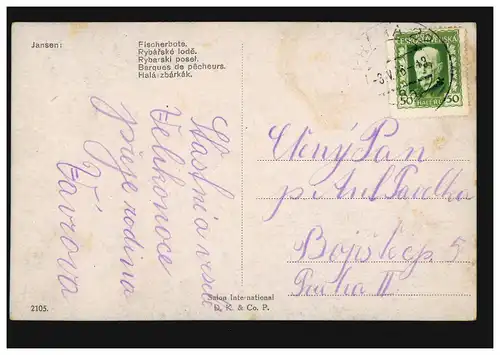 Jansen:
Fischerbote.
Rybářské lodě.
Rybarski poseł.
Barques de pêcheurs.
Halászbárkák.
ČESKOSLOVENSKÁ
50 HALÉŘŮ 50
Šťastné a veselé
Velikonoce
přeje rodina
Vávrova
Ctěný Pan
p. Ant. Pavelka
Bojiště čp 5
Praha II
Salon International
D. K. & Co. P.
2105.